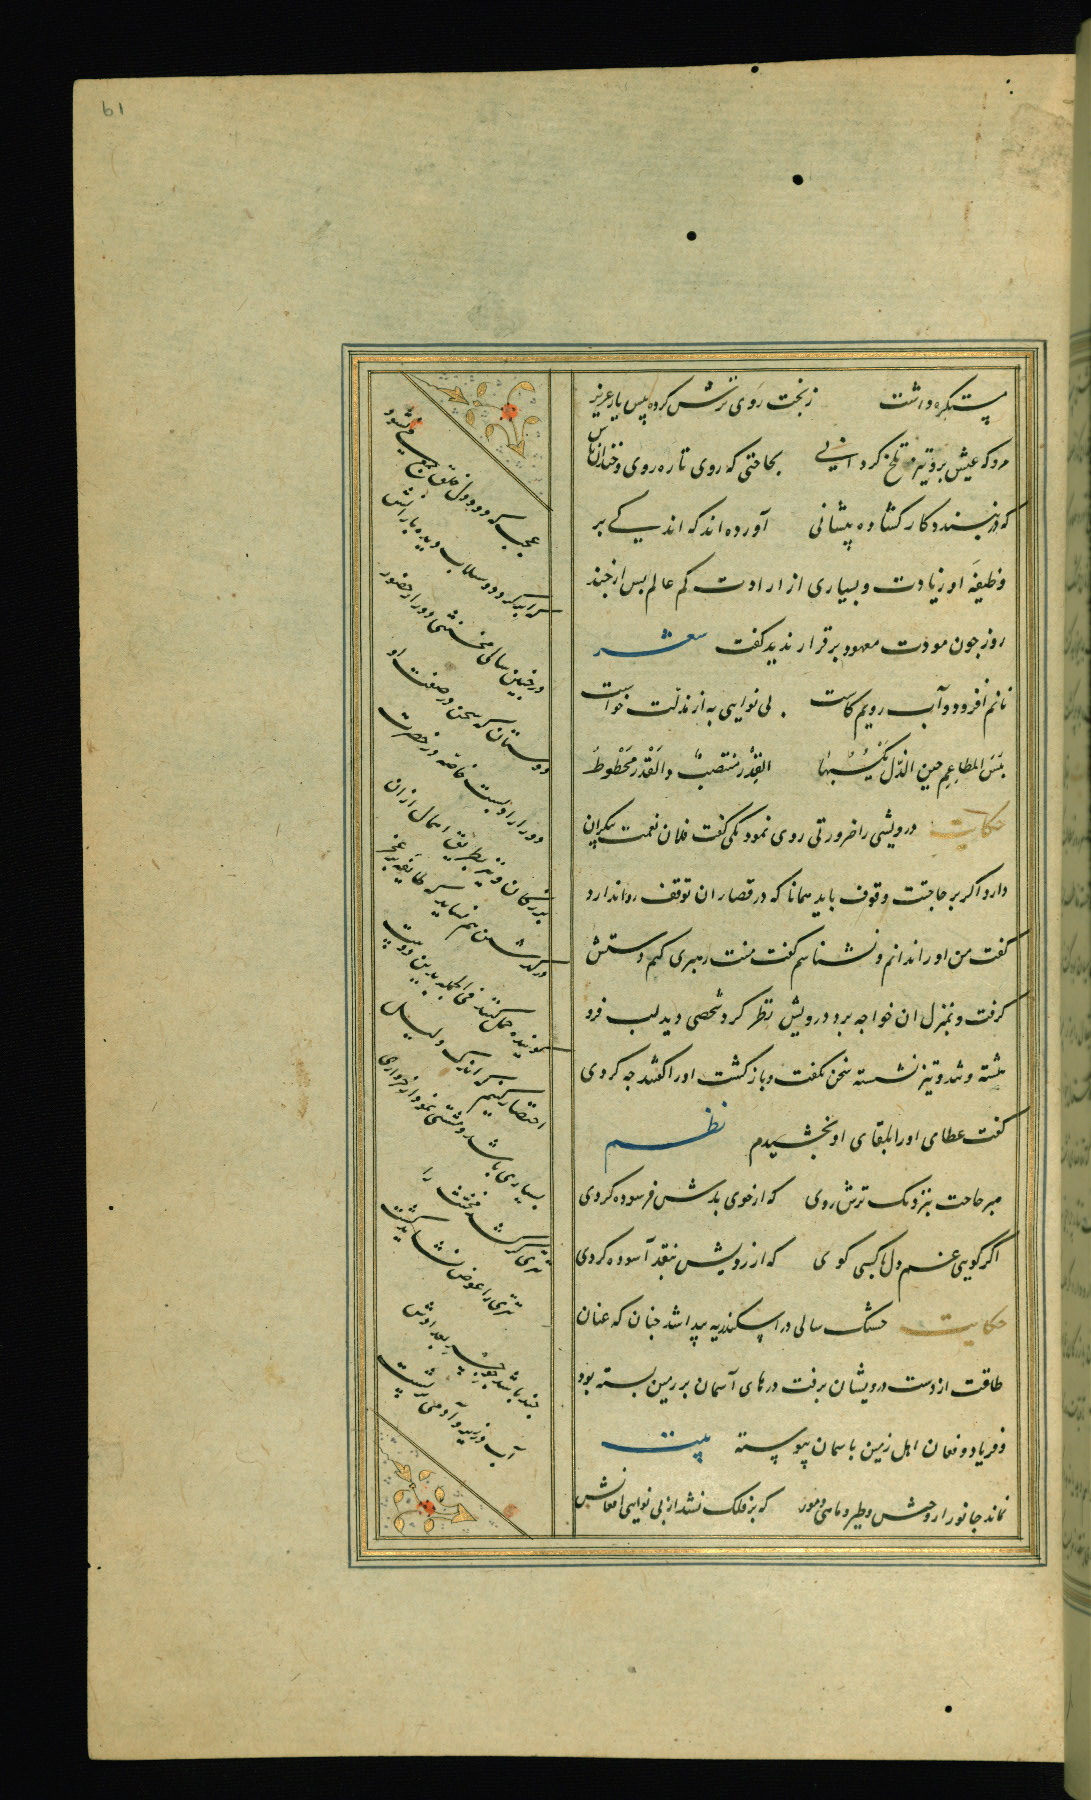 ۶۱
میستکره داشت ز بخت روی ترش کرده پیش یار عزیز
مرو که عیش برو نیز تلخ کردانی بحاجتی که روی تازه روی و خندان باش
که در نبندد کار کشاده پیشانی آورده اند که اندکی بر
وظیفه او زیادت و بسیاری از ارادت کم عالم بس از چند
روز چون مودت معهود برقرار ندید گفت شعر
نانم افزود و آب رویم کاست بی نوایی به از مذلت خواست
بئس المطاعم حین الذل تکسبها القدر منتصب والقدر مخطوط
حکایت درویشی را ضرورتی روی نمود یکی گفت فلان نعمت بیکران
دارد اگر بر حاجتت وقوف یابد همانا که در قضای ان توقف روا ندارد
گفت من او را ندانم و نشناسم گفت منت رهبری کنم دستش
گرفت و بمنزل ان خواجه برد درویش نظر کرد شخصی دید لب فرو
هشته و تند و تیز نشسته سخن نگفت و بازگشت او را گفتند چه کردی
گفت عطای او را بلقای او بخشیدم نظم
مبر حاجت بنزدیک ترش روی که از خوی بدش فرسوده کردی
اگر گویی غم دل با کسی گوی که از رویش بنقد آسوده کردی
حکایت خشک سالی در اسکندریه پیدا شد چنان که عنان
طاقت از دست درویشان برفت درهای آسمان بر زمین بسته بود
و فریاد و فغان اهل زمین باسمان پیوسته بیت
نماند جانور از وحش و طیر و ماهی و مور که بر فلک نشد از بی نوایی افغانش
عجب که دود دل خلق جمع می نشود
که ابر گردد و سیلاب دیده بارانش
در چنین سالی مخنثی دور از حضور
دوستان که سخن در صفت او
دور از ادبست خاصه در حضرت
بزرگان و نیز بطریق اهمال از ان
در گذشتن هم نشاید که طایفه بر عجز
گوینده حمل کنند فی الجمله بدین دو بیت
اختصار کنیم که اندک دلیل
بسیاری باشد و مشتی نمودار خرواری
تتری گر کشد مخنث را
تتری را عوض نشاید کشت
چند باشد چو جسر بغدادش
آب در زیر و آدمی در پشت